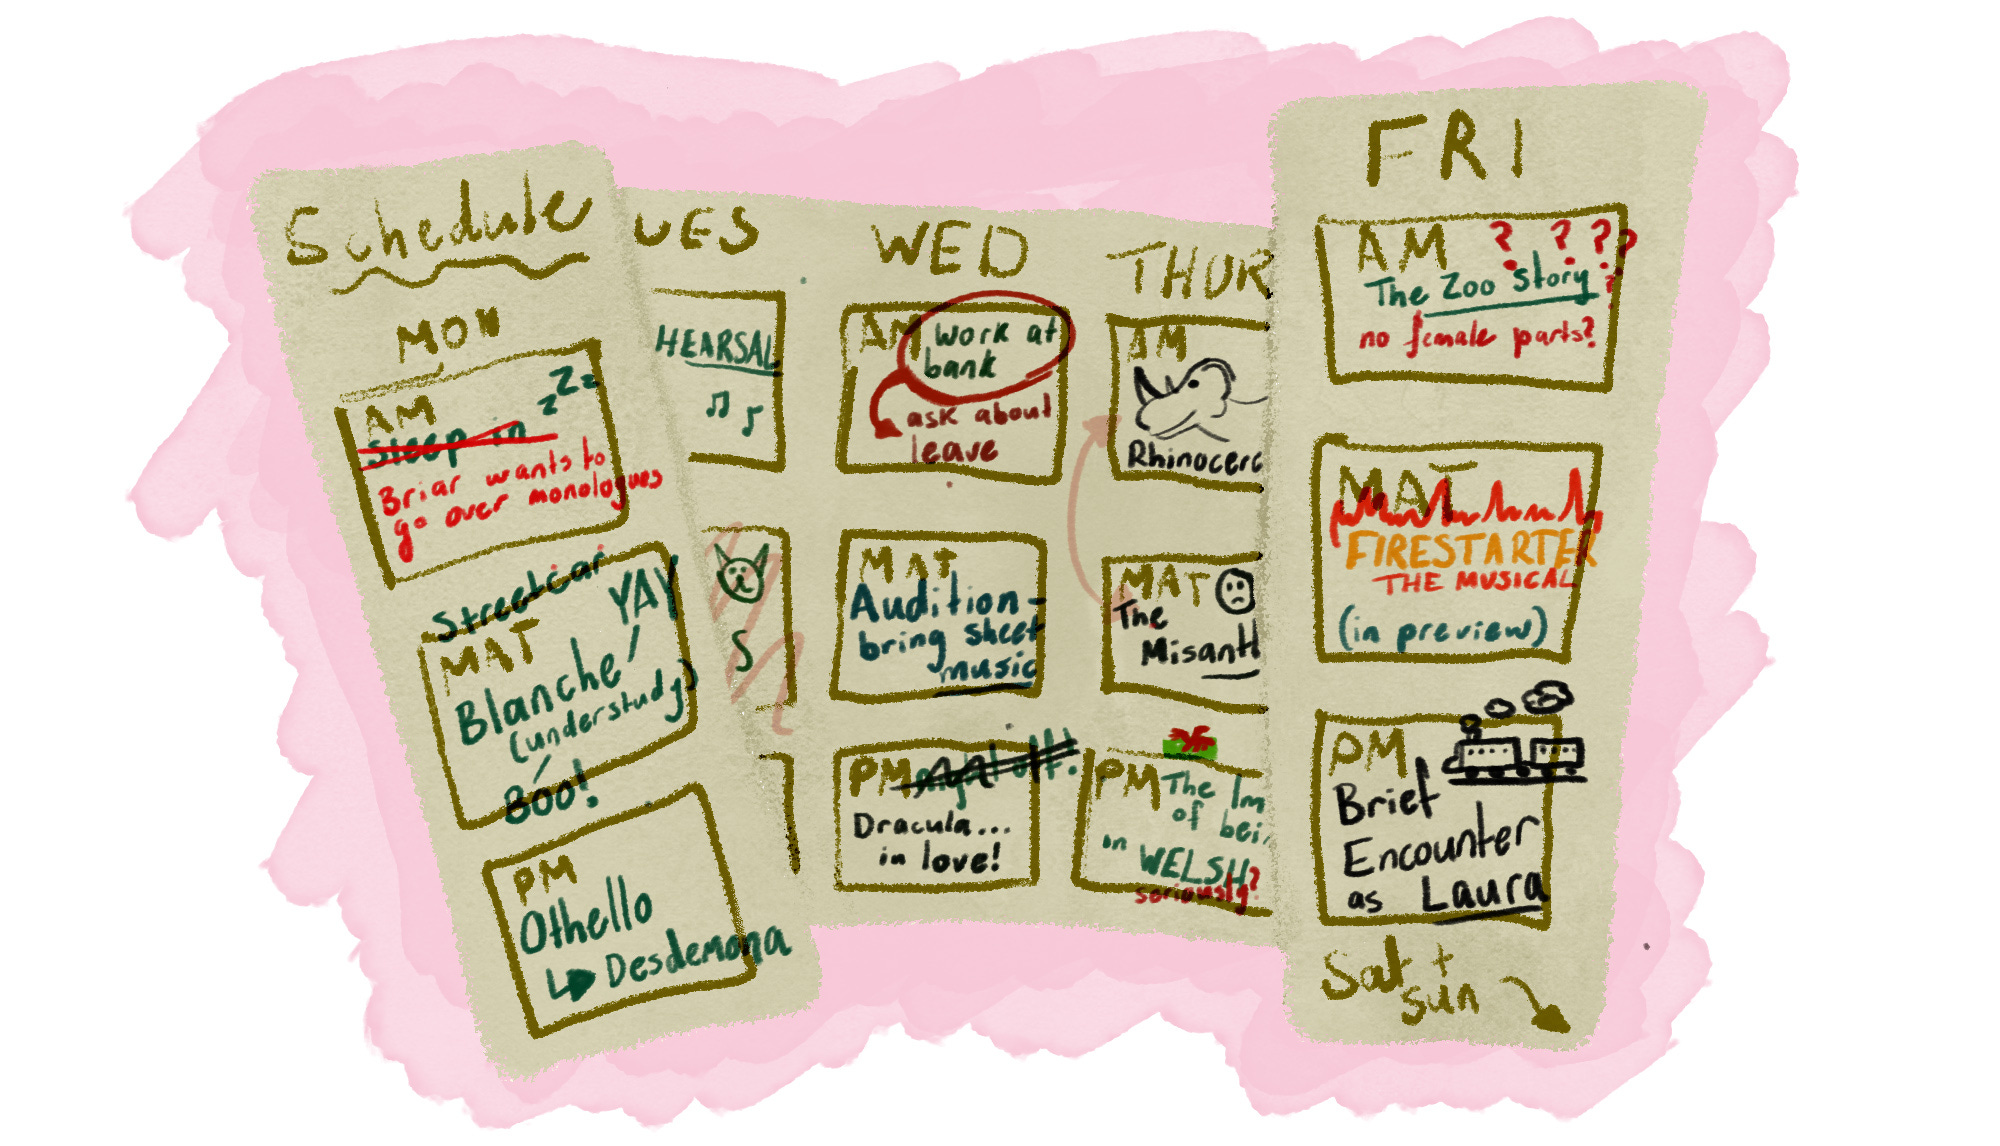 Schedule
MON
AM
zzz
Sleep in
Briar wants to
go over monologues
Streetcar
MAT
YAY
Blanche
(understudy)
BOO!
PM
Othello
Desdemona
UES
HEARSAL
S
WED
AM
work at
bank
ask about
leave
MAT
Audition -
bring sheet
music
PM
night off!
Dracula...
in love!
THUR
AM
Rhinocerc
MAT
The
Misanth
PM
The Im
of bei
in WELSH
seriously?
FRI
AM
? ? ? ? ?
The Zoo Story
no female parts?
MAT
FIRESTARTER
THE MUSICAL
(in preview)
PM
Brief
Encounter
as Laura
Sat +
sun